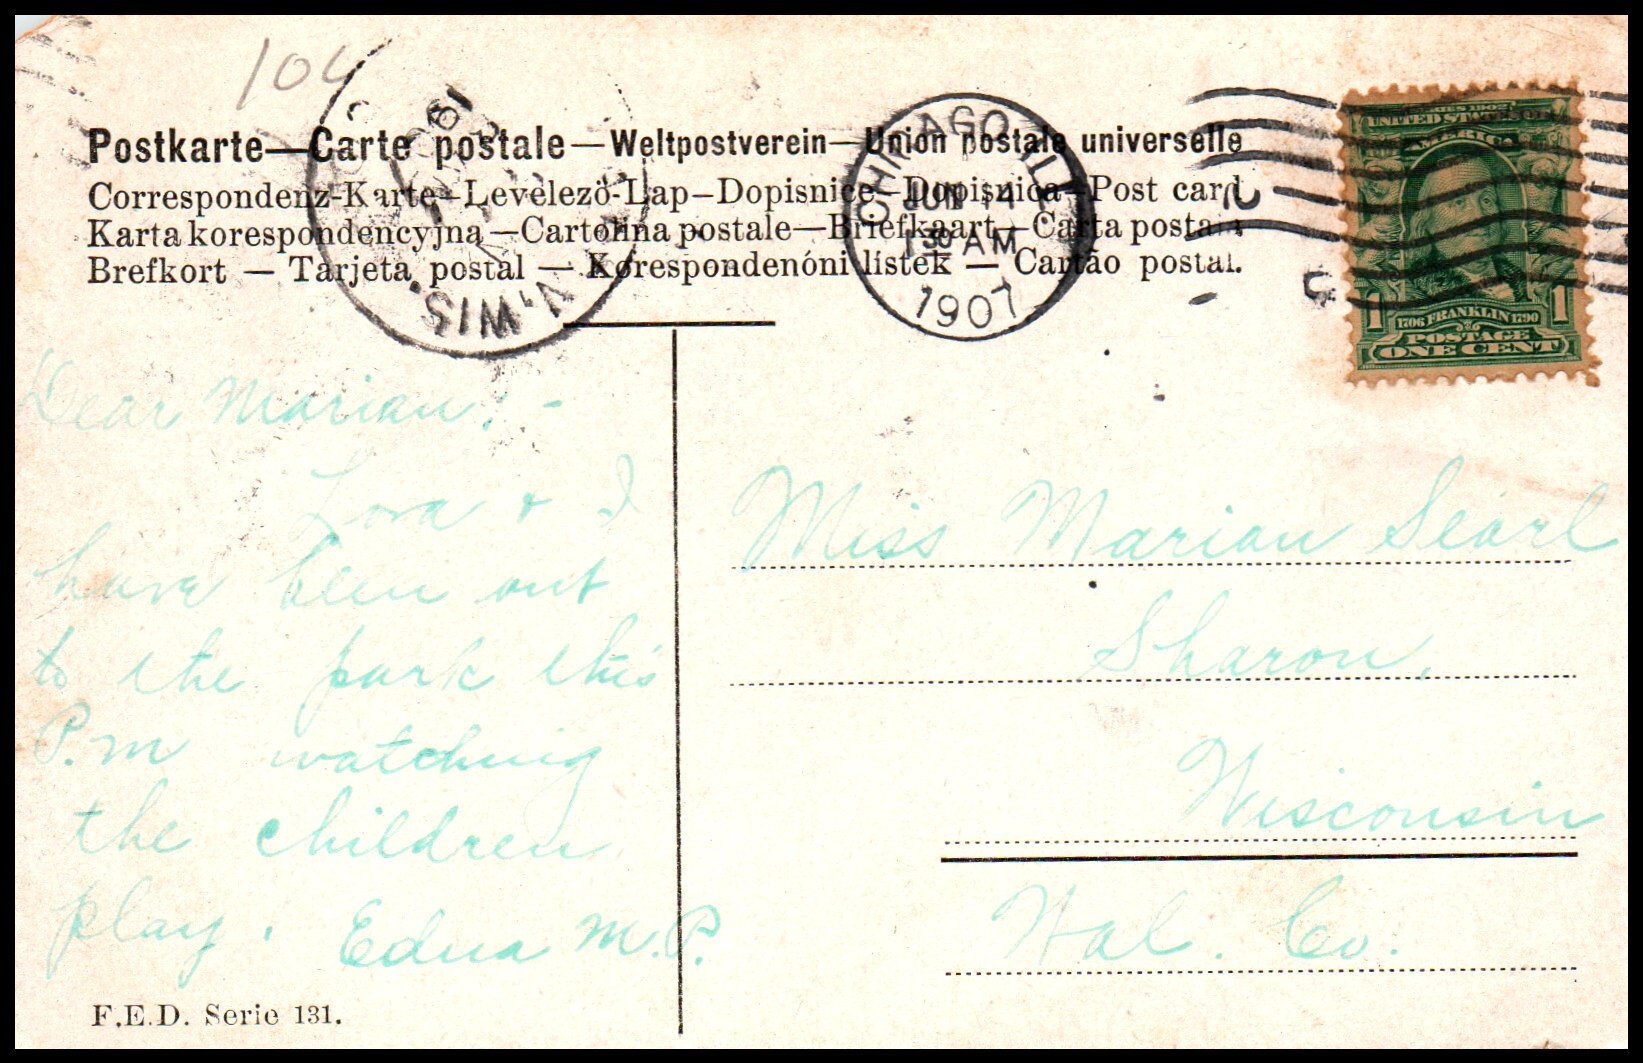 104
Postkarte—Carte postale—Weltpostverein—Union postale universelle
Correspondenz-Karte—Levelezö-Lap—Dopisnice—Dopisnica—Post card
Karta korespondencyjna—Cartolina postale—Briefkaart—Carta postala
Brefkort — Tarjeta postal — Korespondenóni listek — Cartão postal.
CHICAGO, ILL.
JUN 14
1 30 AM
1907
WIS.
SERIES 1902
UNITED STATES OF
AMERICA
1 1706 FRANKLIN 1790 1
POSTAGE
ONE CENT
Dear Marian:-
Lora & I
have been out
to the park this
P.m watching
the children
play. Edna M.P.
Miss Marian Searl
Sharon,
Wisconsin
Wal. Co.
F.E.D. Serie 131.